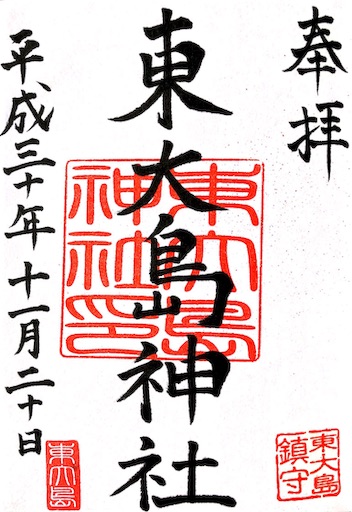 奉拝
東大島神社
東大島神社印
平成三十年十一月二十日
東大島
鎮守
東大島